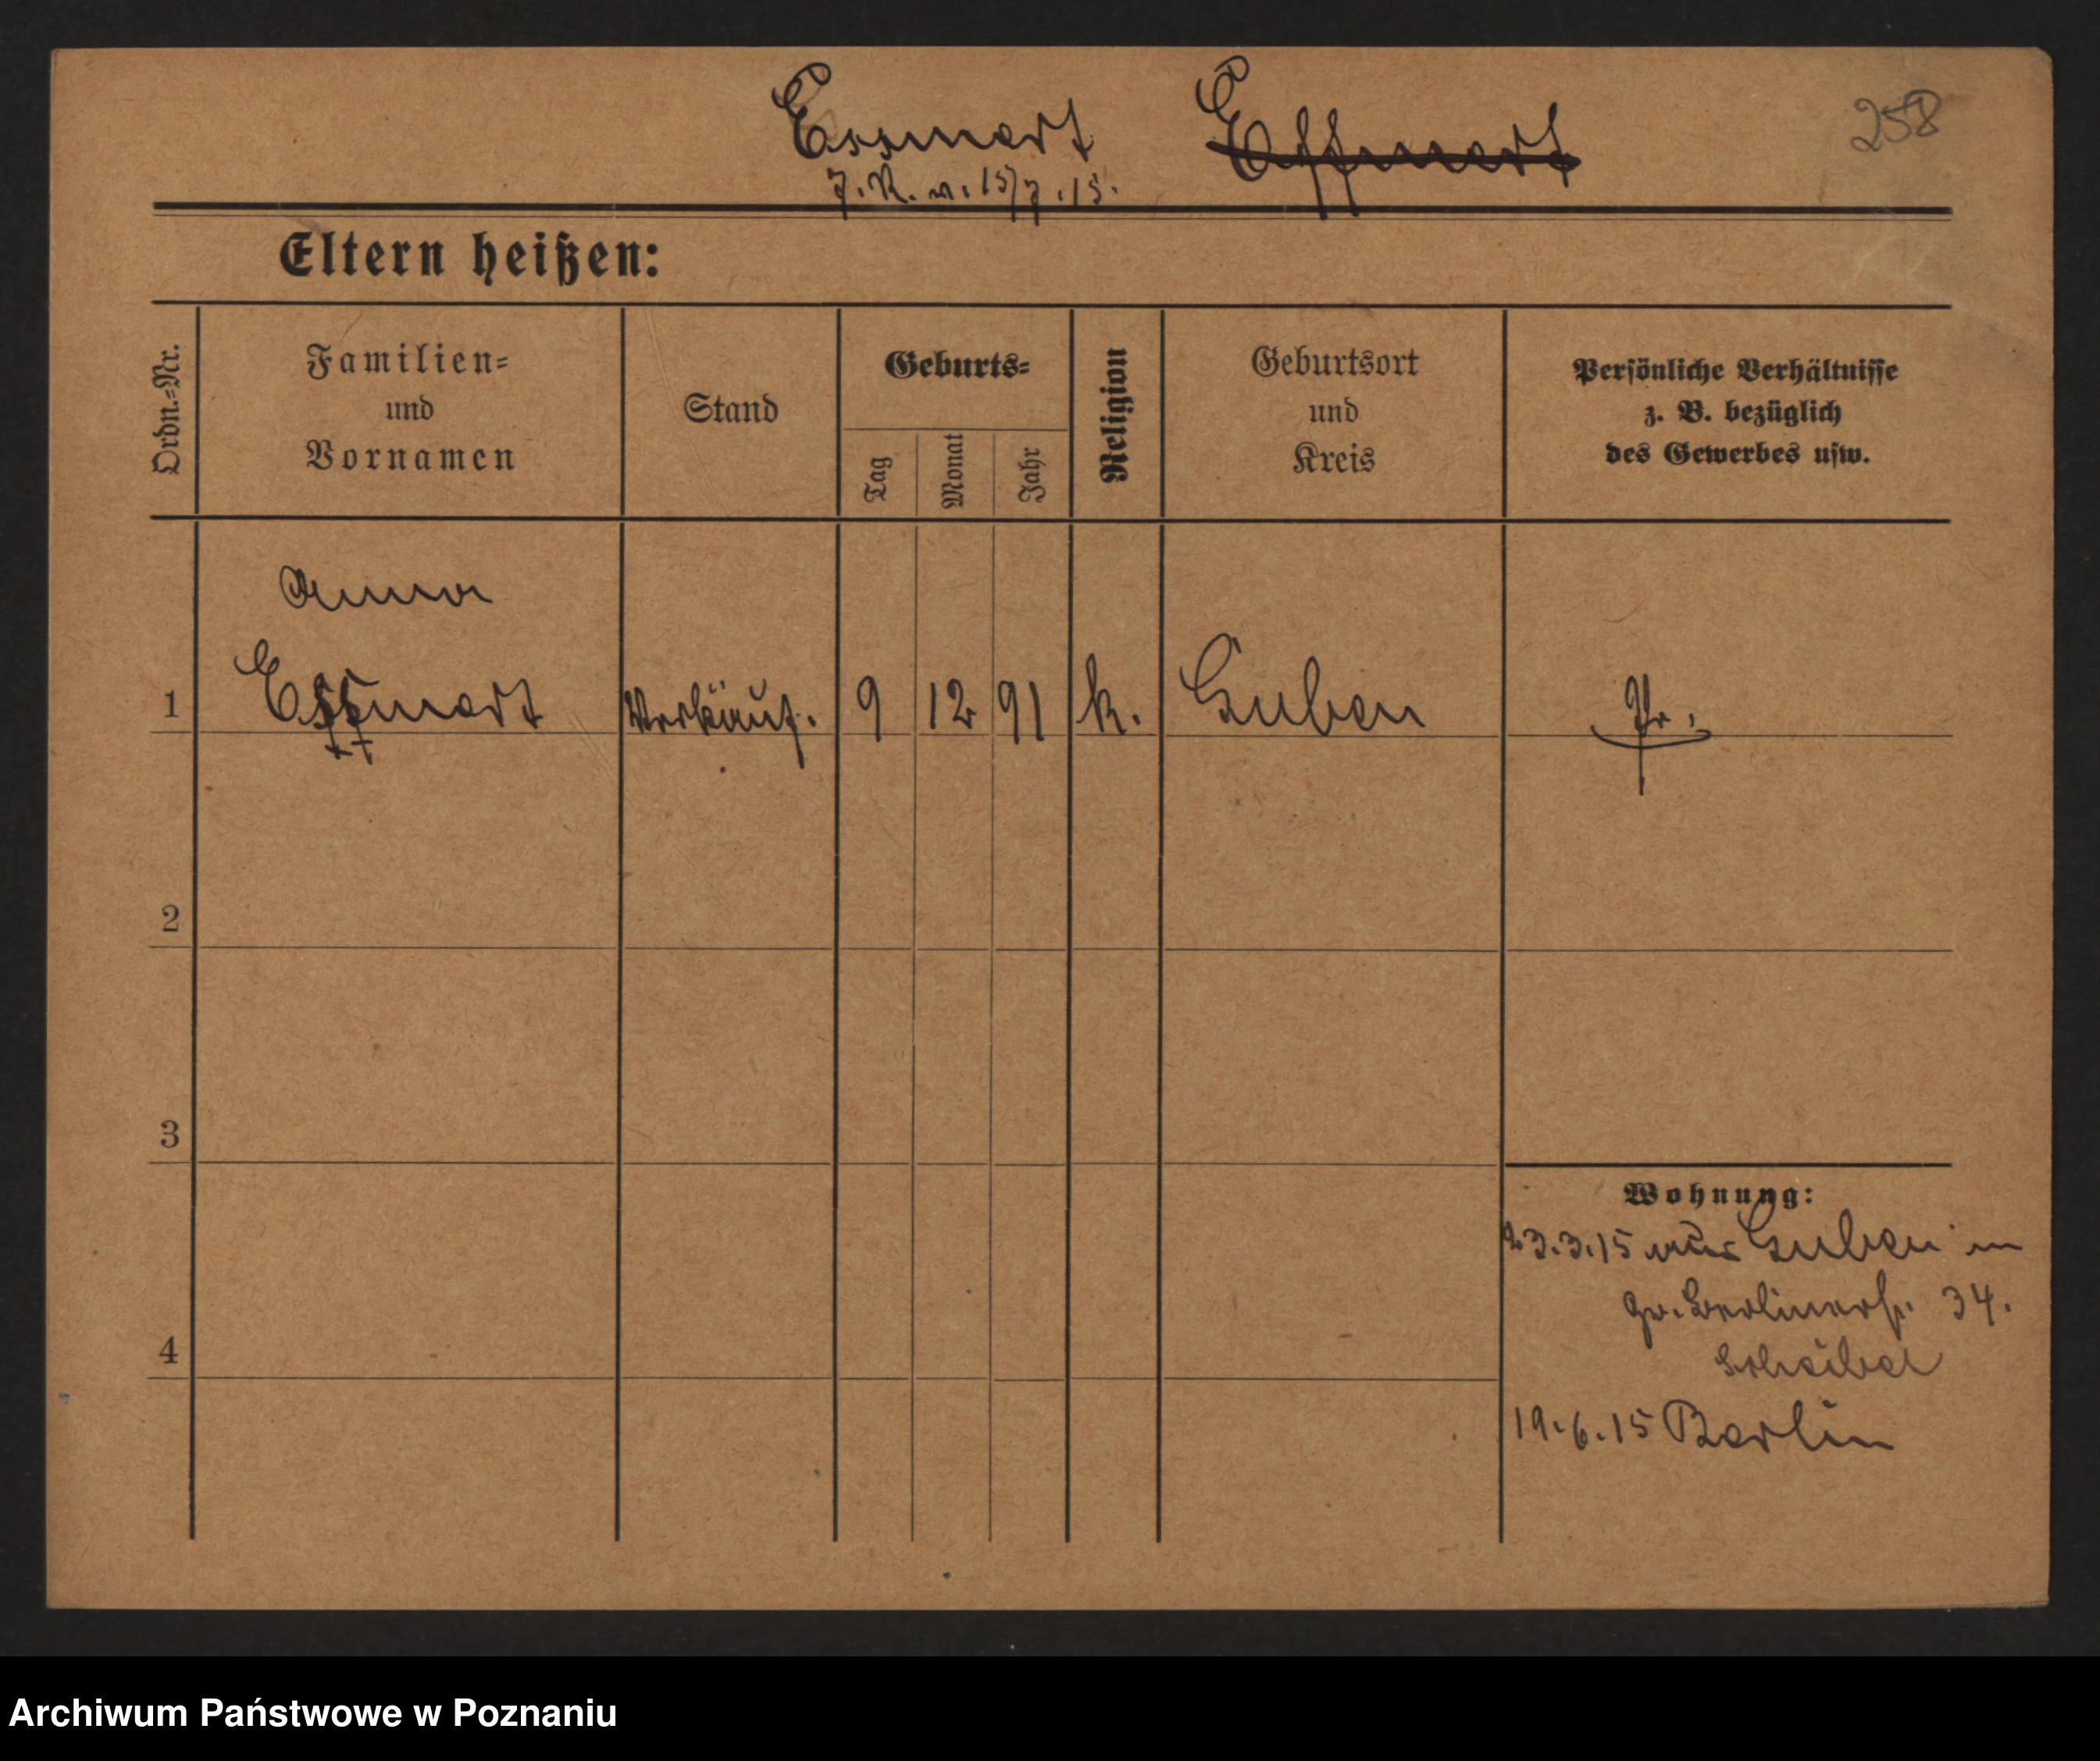 Essmert Effmert 258
J.R. v. 15/7.15.
Eltern heißen:
Ordn.=Nr.
Familien=
und
Vornamen
Stand
Geburts=
Tag
Monat
Jahr
Religion
Geburtsort
und
Kreis
Persönliche Verhältnisse
z. B. bezüglich
des Gewerbes usw.
Anna
1 Essmert Verkäuf. 9 12 91 k. Guben Pr.
2
3
4
Wohnung:
23.3.15 aus Guben in
Gr. Berlinerstr. 34.
Scheibel
19.6.15 Berlin
Archiwum Państwowe w Poznaniu